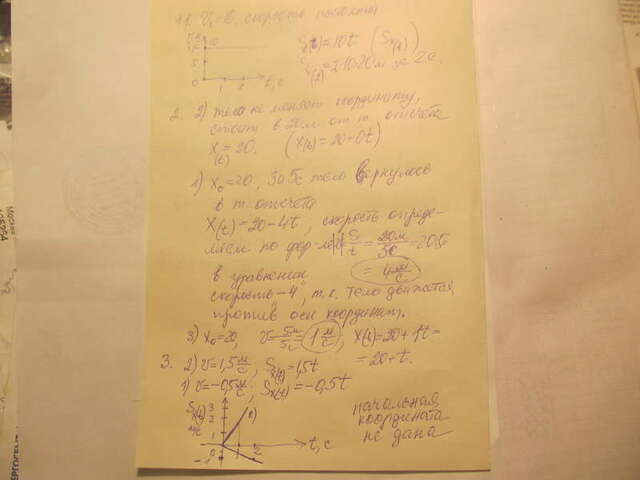 скорость постоянна
S(t)=10t (Sx(t))
t, c
2. 2) тело не меняет координату,
стоит в 20м от т. отсчета
X(t)=20. (X(t)=20+0t)
1) X₀=20, за 5с тело вернулось
в т. отсчета
X(t)=20-4t, скорость опреде-
ляем по фор-ле S/t = 20м/5с =
= 4 м/с
в уравнении
скорость "-4", т.к. тело движется
против оси координат.
3) X₀=20, v=5м/5с=1 м/с, X(t)=20+1t=
=20+t.
3. 2) v=1,5 м/с, Sx(t)=1,5t
1) v=-0,5 м/с, Sx(t)=-0,5t
начальная
координата
не дана
t, c